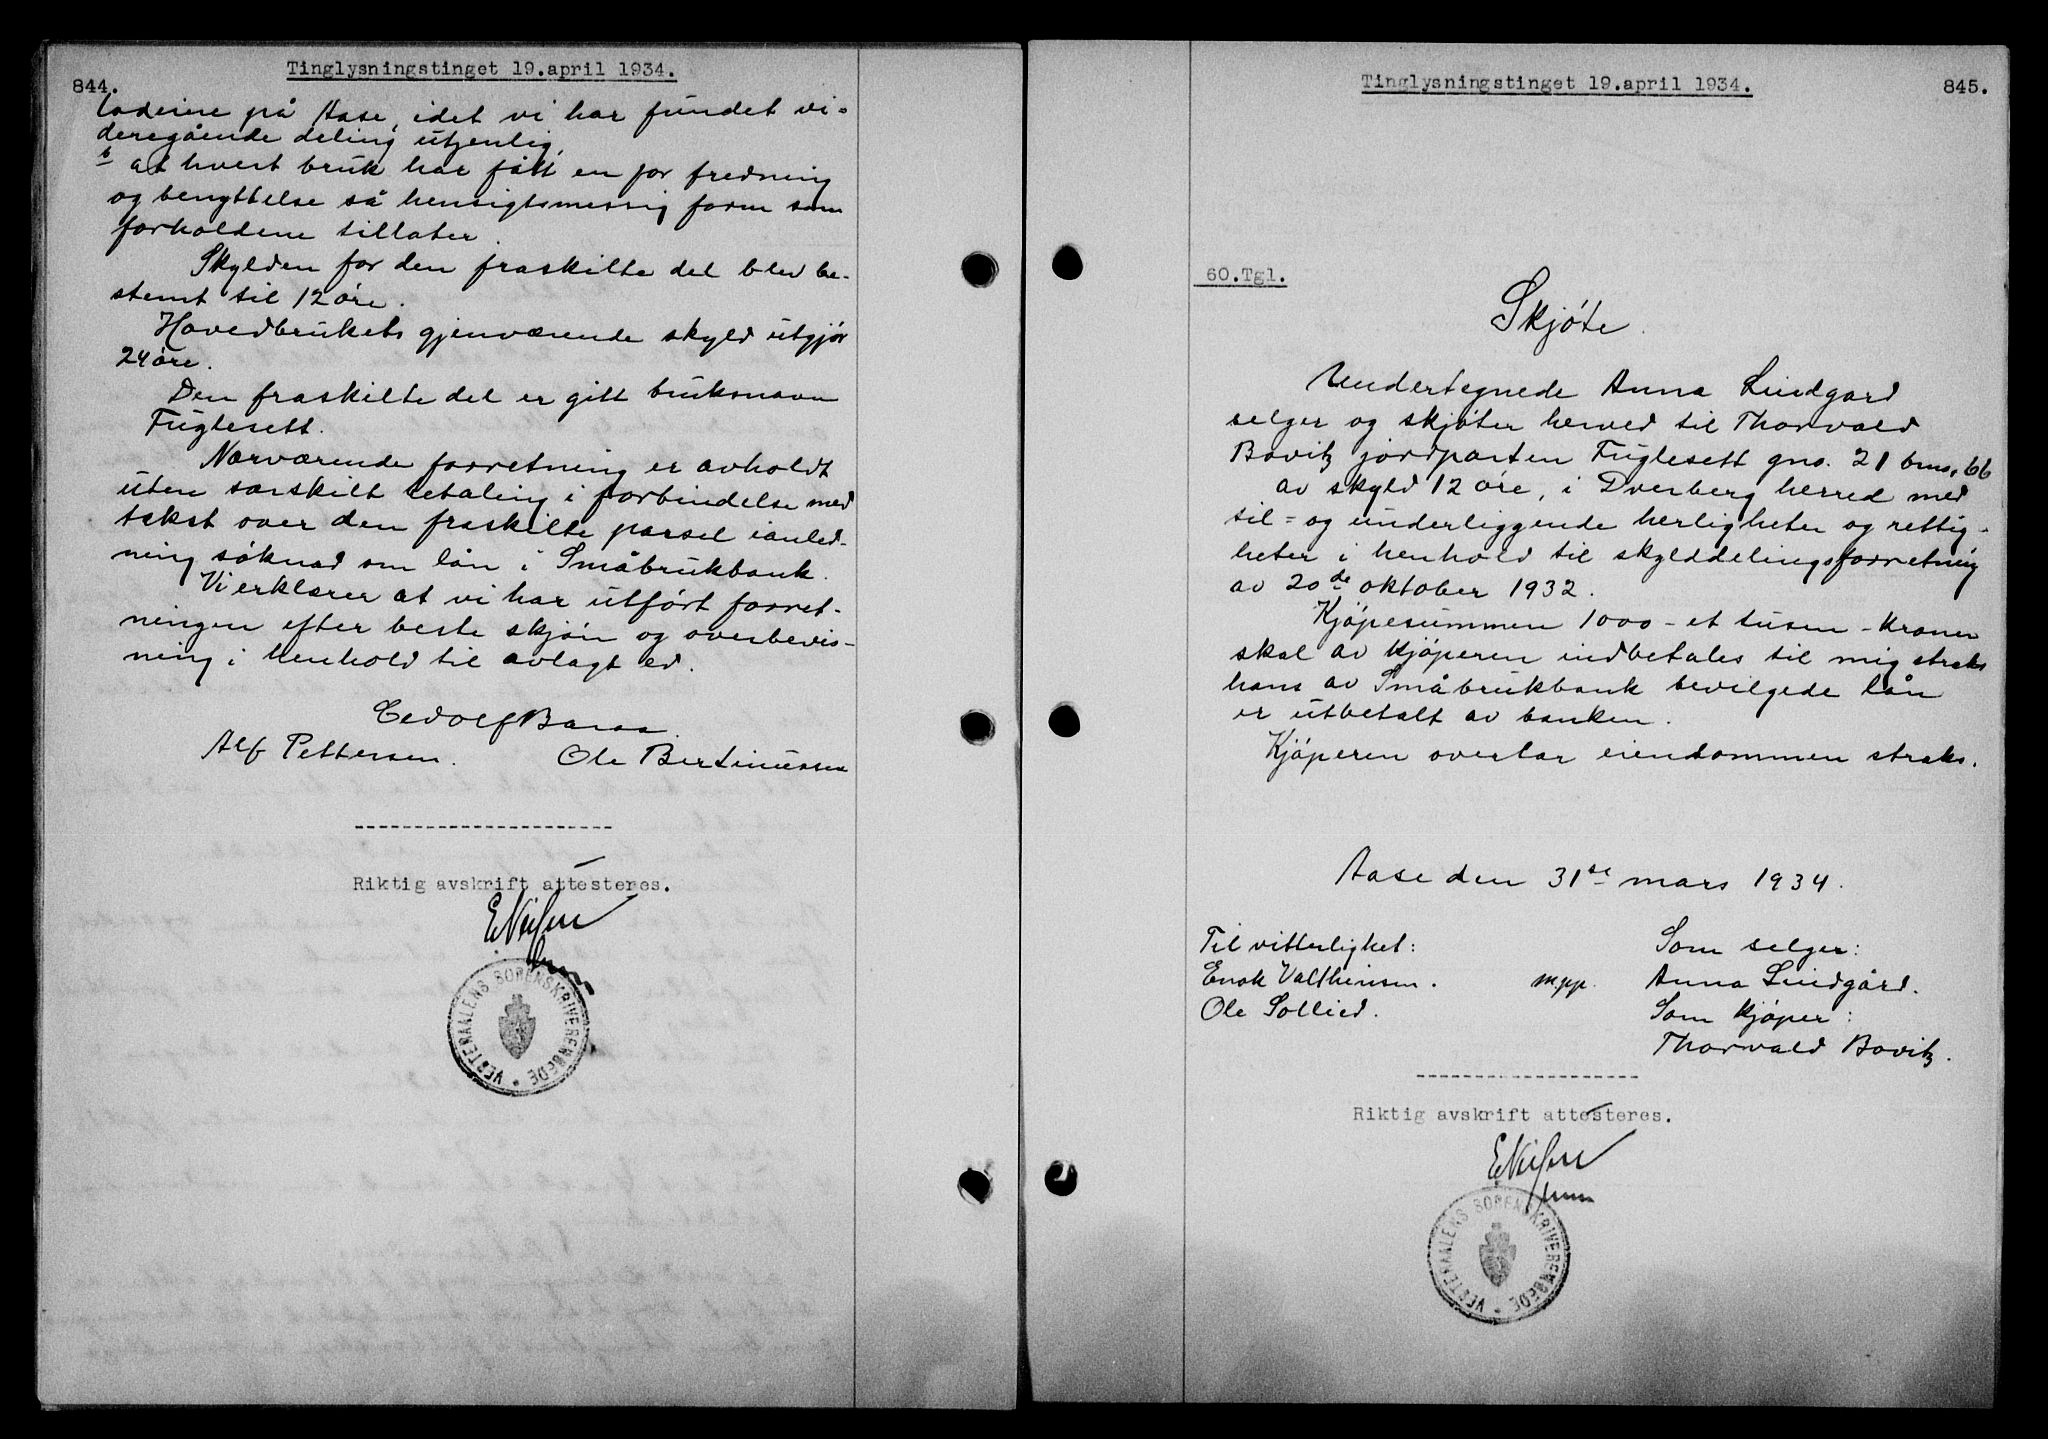 844.
Tinglysningstinget 19.april 1934.
på Aase, idet vi har fundet vi-
deregående deling utjenlig,
b at hvert bruk har fått en for fredning
og benyttelse så hensigtsmessig form som
forholdene tillater.
Skylden for den fraskilte del blev be-
stemt til 12 øre.
Hovedbrukets gjenværende skyld utgjør
24 øre.
Den fraskilte del er gitt bruksnavn
Fuglesett.
Nærværende forretning er avholdt
uten særskilt betaling i forbindelse med
takst over den fraskilte parsel i anled-
ning søknad om lån i Småbrukbank.
Vi erklærer at vi har utført forret-
ningen efter beste skjøn og overbevis-
ning i henhold til avlagt ed.
Alf Pettersen. Ole Bertinussen
Riktig avskrift attesteres.
VESTERAALENS SORENSKRIVEREMBEDE
Tinglysningstinget 19.april 1934.
845.
60.Tgl.
Skjøte.
Undertegnede Anna Lindgard
selger og skjøter herved til Thorvald
Bovitz jordparten Fuglesett gno. 21 bno. 66
av skyld 12 øre, i Dverberg herred med
til- og underliggende herligheter og rettig-
heter i henhold til skylddelingsforretning
av 20de oktober 1932.
Kjøpesummen 1000 - et tusen - kroner
skal av kjøperen indbetales til mig straks
hans av Småbrukbank bevilgede lån
er utbetalt av banken.
Kjøperen overtar eiendommen straks.
Aase den 31te mars 1934.
Til vitterlighet: Som selger:
Enok Valthinsen. m.p.p. Anna Lindgård.
Ole Sollied. Som kjøper:
Thorvald Bovitz.
Riktig avskrift attesteres.
VESTERAALENS SORENSKRIVEREMBEDE